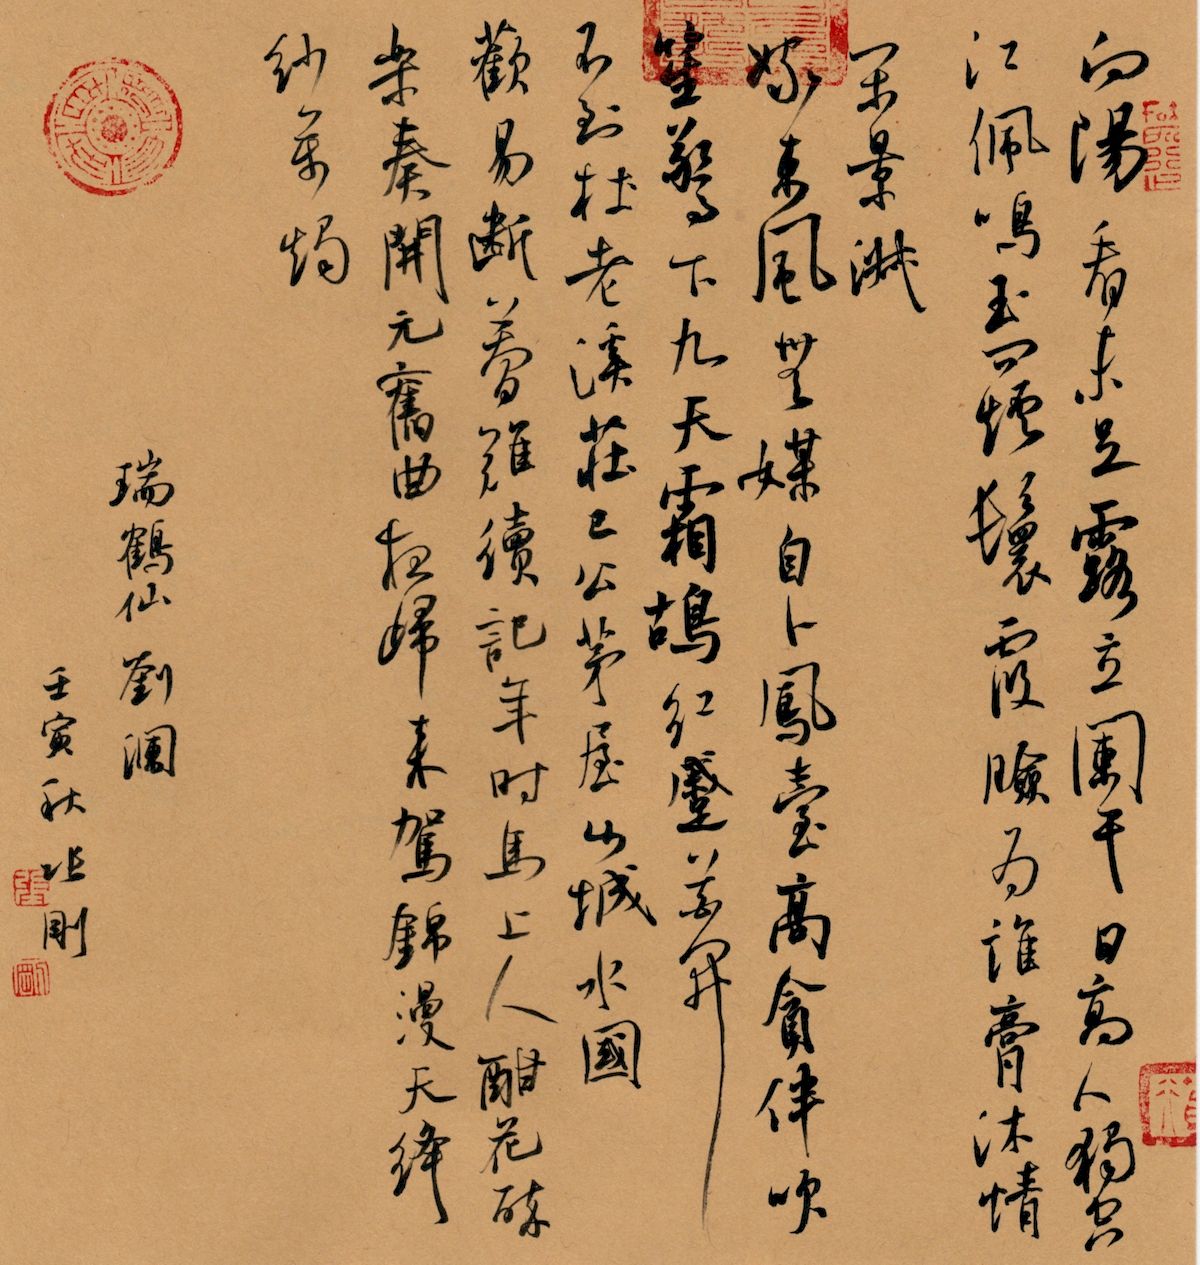 向陽看未足露立闌干日高人獨空
江佩鳴玉問煙鬟霞臉為誰膏沐情
閑景淑
嫁東風無媒自卜鳳臺高貪伴吹
笙驚下九天霜鵠紅蹙花開
不到杜老溪莊已公茅屋山城水國
歡易斷夢難續記年時馬上人酣花醉
樂奏開元舊曲夜歸來駕錦漫天絳
紗萬燭
瑞鶴仙 劉瀾
壬寅秋 張剛